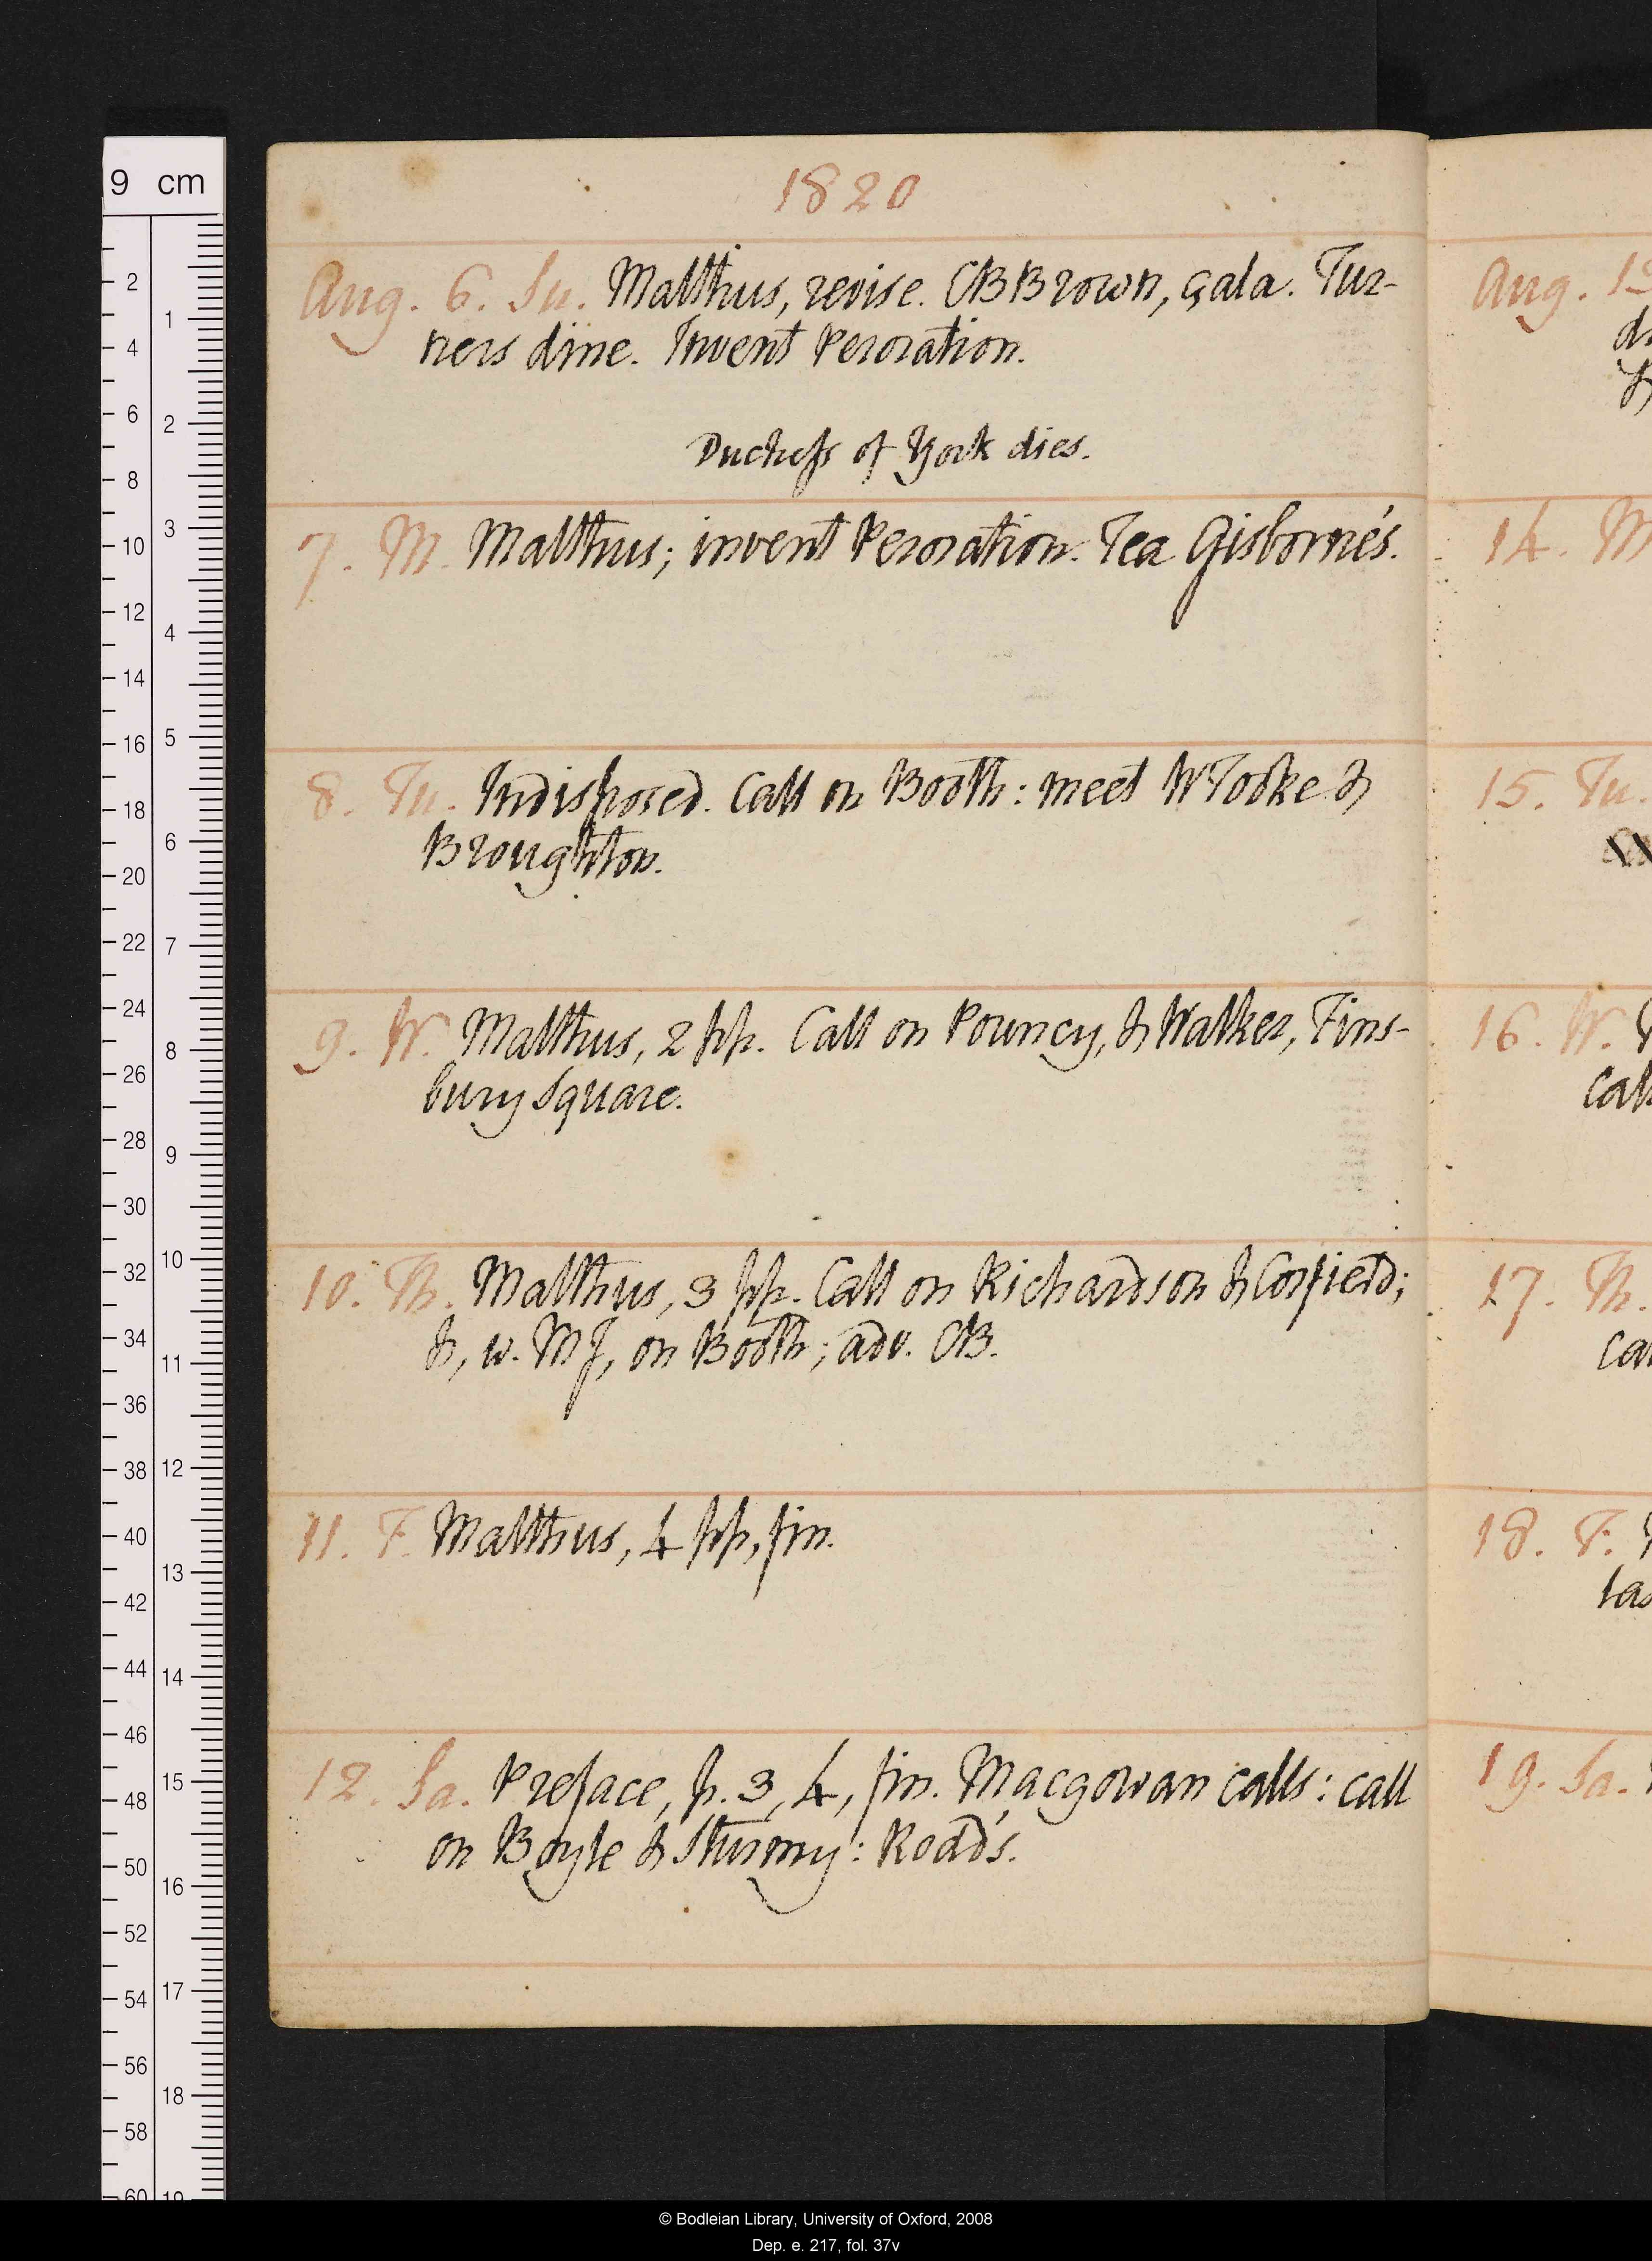 1820
Aug. 6. Su. Malthus, revise. CBBrown, çala. Tur-
ners dine. Invent Peroration.
Duchess of York dies.
7. M. Malthus; invent Peroration. Tea Gisborne's.
8. Tu. Indisposed. Call on Booth: meet WTooke &
Broughton.
9. W. Malthus, 2 pp. Call on Pouncy, & Walker, Fins-
bury Square.
10. Th. Malthus, 3 pp. Call on Richardson & Corfield;
&, w. MJ, on Booth; adv. CB.
11. F. Malthus, 4 pp, fin.
12. Sa. Preface, p. 3, 4, fin. Macgowan calls: call
on Boyle & Sturmy: Roads.
Aug. 13
14. M
15. Tu.
16. W.
Call
17. Th.
cal
18. F.
las
19. Sa.
9 cm
2
4
6
8
10
12
14
16
18
20
22
24
26
28
30
32
34
36
38
40
42
44
46
48
50
52
54
56
58
60
1
2
3
4
5
6
7
8
9
10
11
12
13
14
15
16
17
18
19
© Bodleian Library, University of Oxford, 2008
Dep. e. 217, fol. 37v